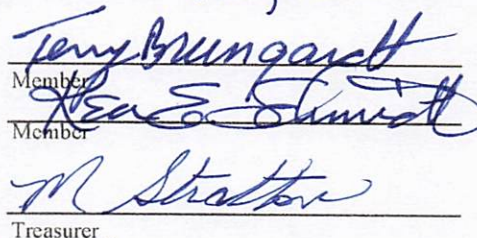 Terry Brungardt
Member
E. Schmidt
Member
M Stratton
Treasurer